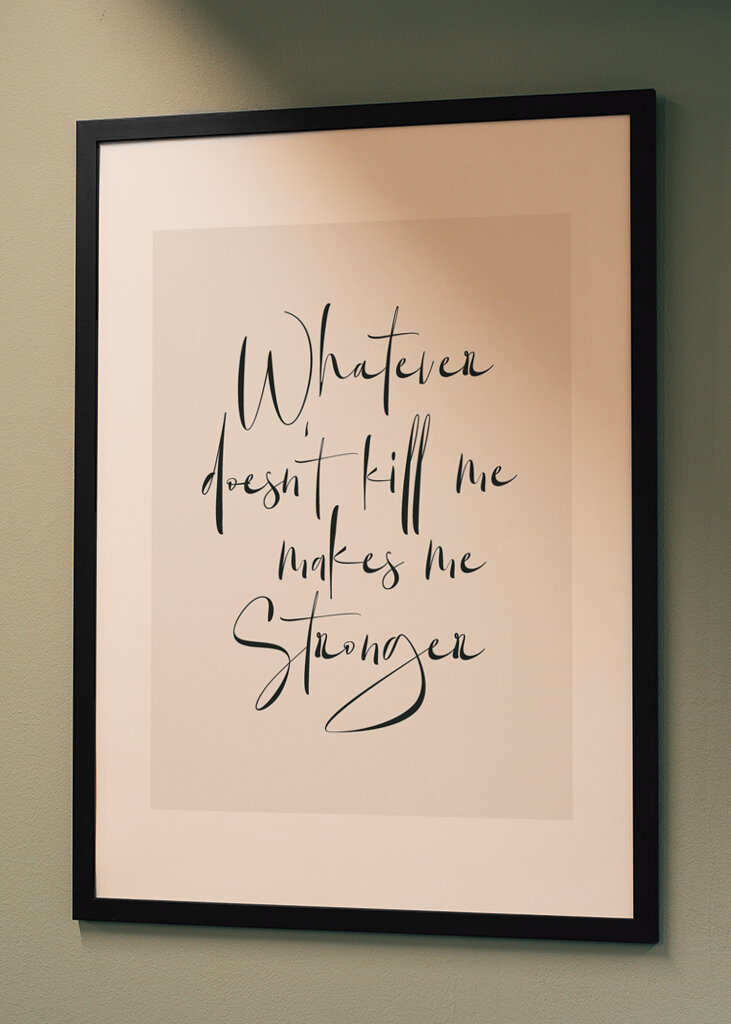 Whatever
doesn't kill me
makes me
Stronger